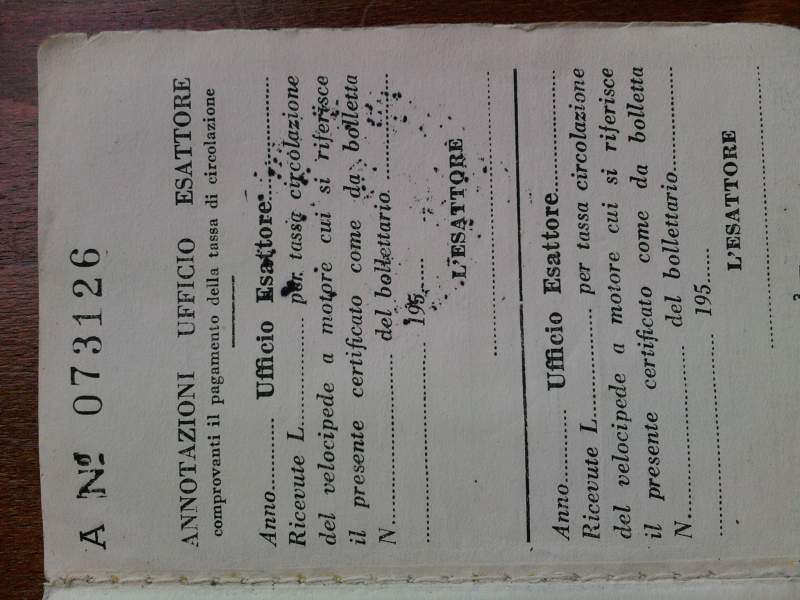 A Nº 073126
ANNOTAZIONI UFFICIO ESATTORE
comprovanti il pagamento della tassa di circolazione
Anno.......... Ufficio Esattore....................
Ricevute L............... per tassa circolazione
del velocipede a motore cui si riferisce
il presente certificato come da bolletta
N........................ del bollettario..................
........................................ 195......
L'ESATTORE
........................................
Anno.......... Ufficio Esattore....................
Ricevute L............... per tassa circolazione
del velocipede a motore cui si riferisce
il presente certificato come da bolletta
N........................ del bollettario..................
........................................ 195......
L'ESATTORE
........................................